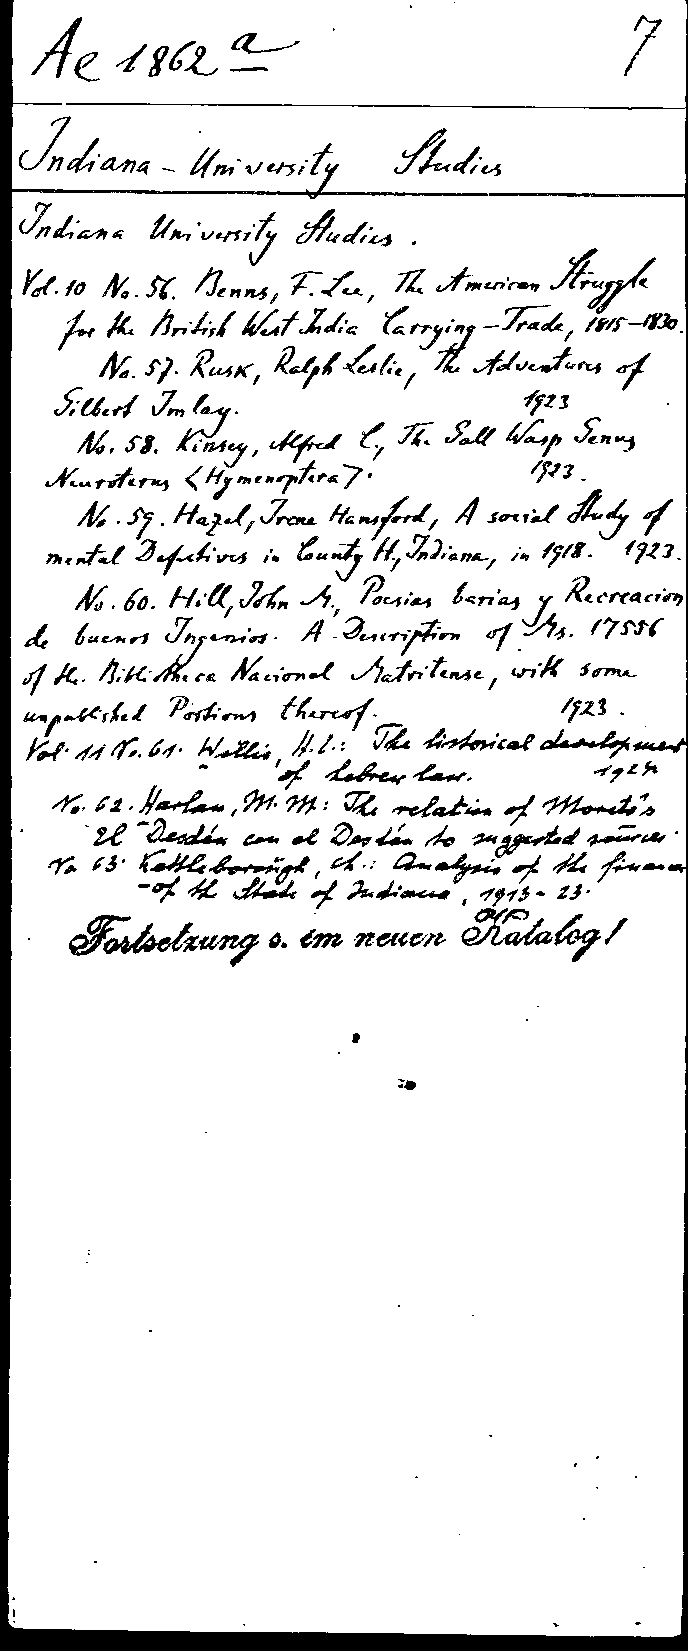 Ae 1862 a 7
Indiana-University Studies
Indiana University Studies.
Vol. 10 No. 56. Benns, F. Lee, The American Struggle
for the British West India Carrying-Trade, 1815-1830.
No. 57. Rusk, Ralph Leslie, The Adventures of
Gilbert Imlay. 1923
No. 58. Kinsey, Alfred C., The Gall Wasp Genus
Neuroterus <Hymenoptera>. 1923.
No. 59. Hazel, Irene Hansford, A social Study of
mental Defectives in County H., Indiana, in 1918. 1923.
No. 60. Hill, John M., Poesias barias y Recreacion
de buenos Ingenios. A Description of Ms. 17556
of the Bibliotheca Nacional Matritense, with some
unpublished Portions thereof. 1923.
Vol. 11 No. 61. Wallis, H. L.: The historical development
of hebrew law. 1924
No. 62. Harlan, M. M: The relation of Moreto's
El Desdén con el Desdén to suggested sources.
No 63. Kettleborough, Ch.: Analysis of the finances
of the State of Indiana, 1913-23.
Fortsetzung s. im neuen Katalog!